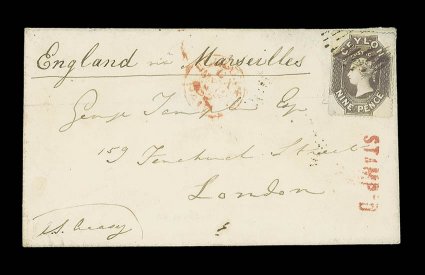 England via Marseilles
CEYLON
NINE PENCE
George Temple Esq
159 Fenchurch Street
London
STAMPED